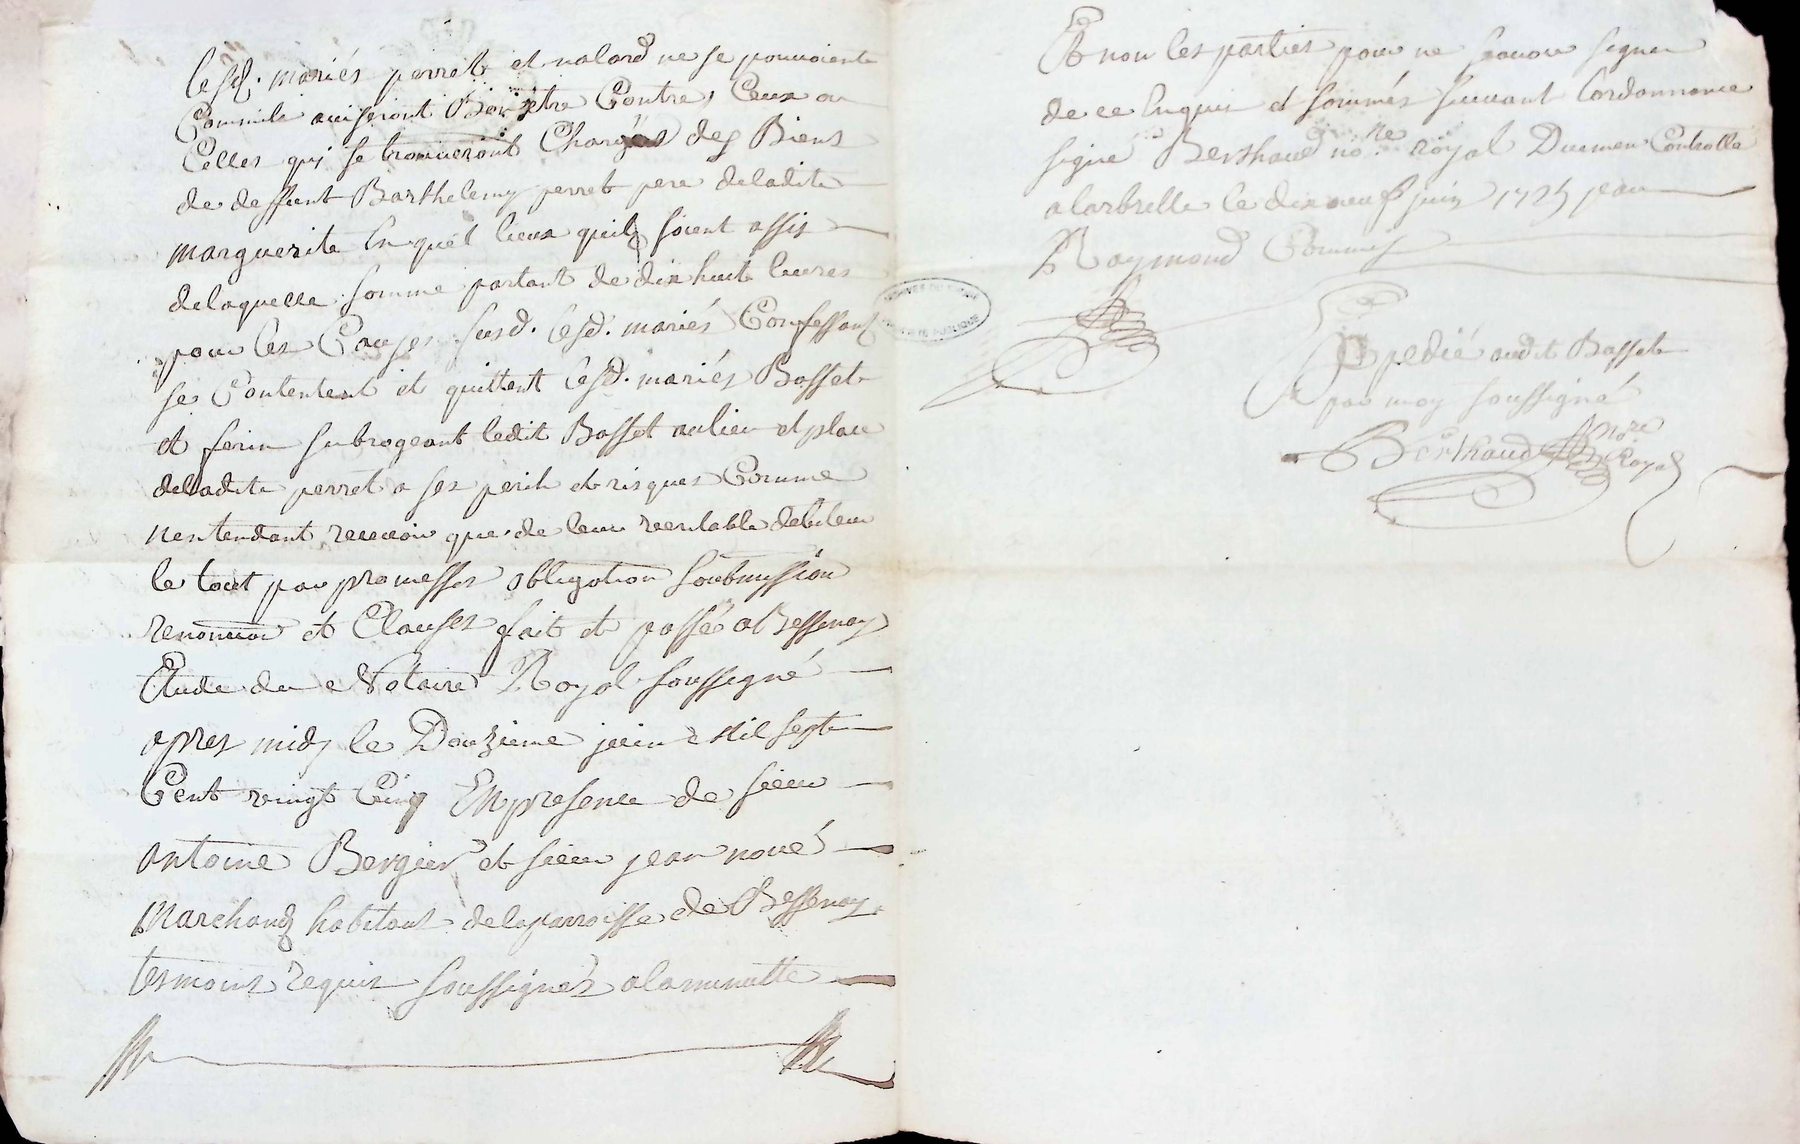 lesd. mariés perret et nalard ne se pouvoient
Comme ils auiseront Bon etre Contre, Ceux ou
Celles qui se trouueront Chargés des Biens
de deffunt Barthelemy perret pere deladite
marguerite En quel lieux quils soient assis
delaquelle somme partant de dix huit liures
pour les Causes susd. lesd. mariés Confessant
se Contentent et quittent lesd. mariés Basset
et ferin subrogeant ledit Basset au lieu et place
deladite perret a ses perils et risques Comme
nentendant receuoir que de leur veritable debiteur
le tout par promesses obligation soubmission
renonciaon et Clauses fait et passé a Bessenay
Etude du Notaire Royal soussigné
apres midy le Douzieme juin Mil sept
Cent vingt Cinq En presence de sieur
antoine Bergier et sieur jean noué
Marchands habitant de la parroisse de Bessenay
tesmoins requis soussignés a la minutte
Et non les parties pour ne scauoir signer
de ce Enquis et sommés suiuant Lordonnance
signé Berthaud no.re royal Duement Controllé
a larbrelle le dix neuf juin 1725 par
Raymond Commis
ARCHIVES DU RHONE
Expedié audit Basset
par moy soussigné
Berthaud nore
Royal